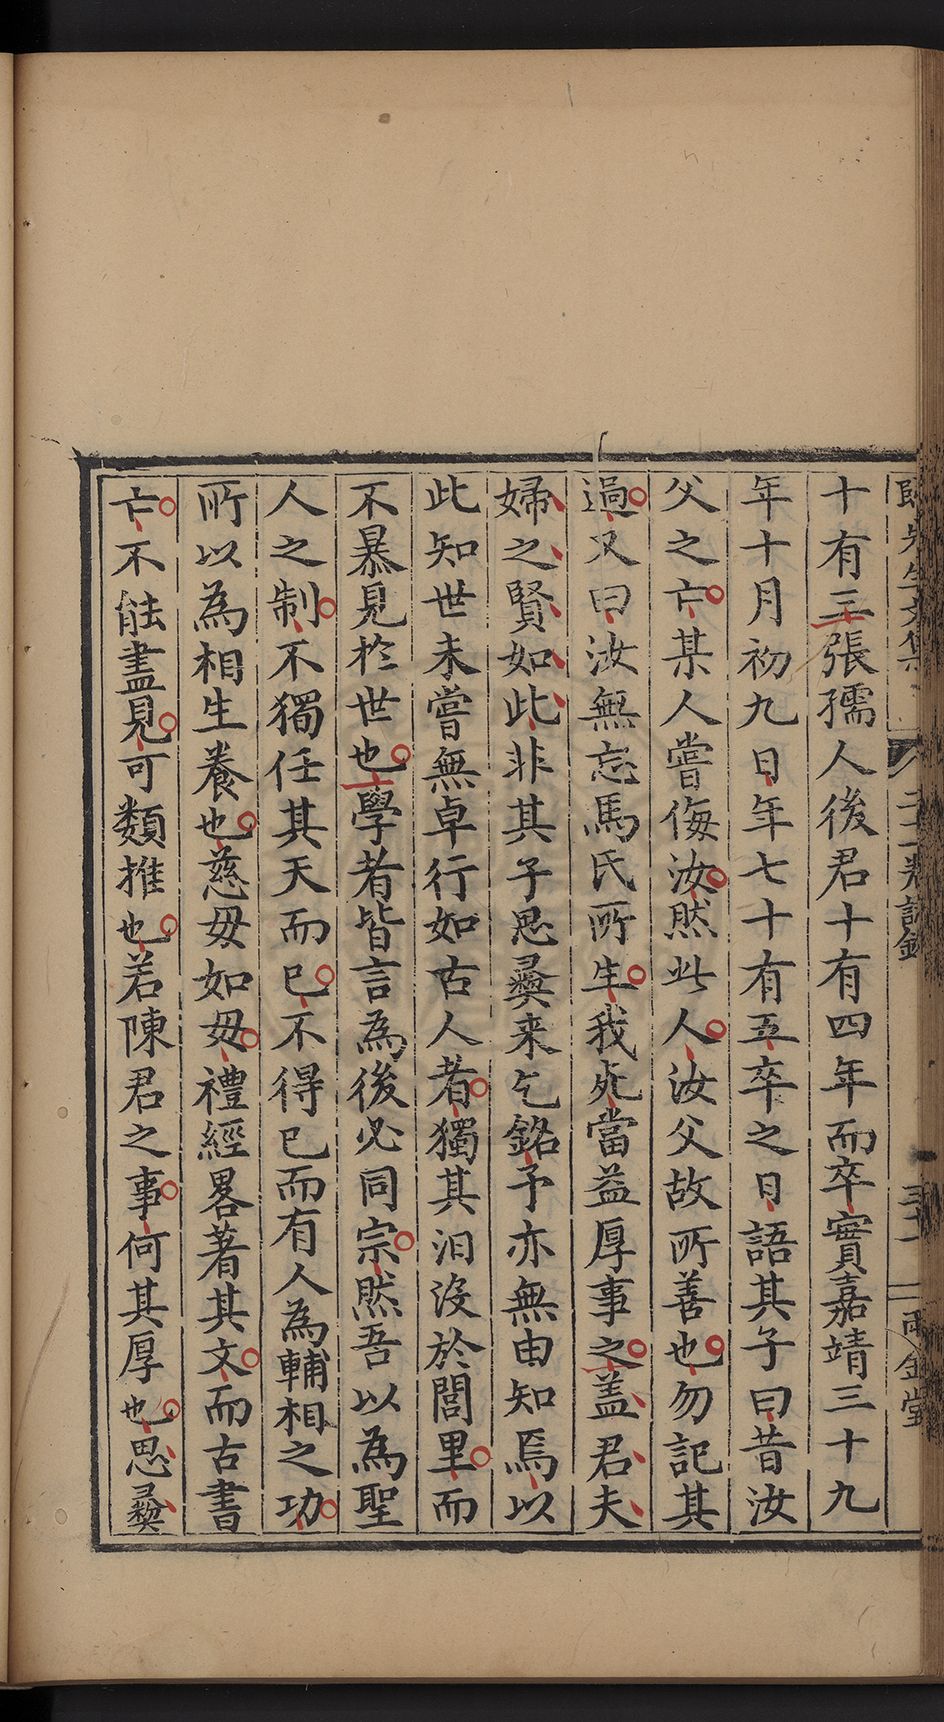 歸先生文集
二十一卷誌銘
三十一
雨金堂
十有三張孺人後君十有四年而卒實嘉靖三十九
年十月初九日年七十有五卒之日語其子曰昔汝
父之亡某人嘗侮汝然此人汝父故所善也勿記其
過又曰汝無忘馬氏所生我死當益厚事之盖君夫
婦之賢如此非其子思彞来乞銘予亦無由知焉以
此知世未嘗無卓行如古人者獨其汩沒於閭里而
不暴見於世也學者皆言為後必同宗然吾以為聖
人之制不獨任其天而已不得已而有人為輔相之功
所以為相生養也慈毋如毋禮經畧著其文而古書
亡不能盡見可類推也若陳君之事何其厚也思彞